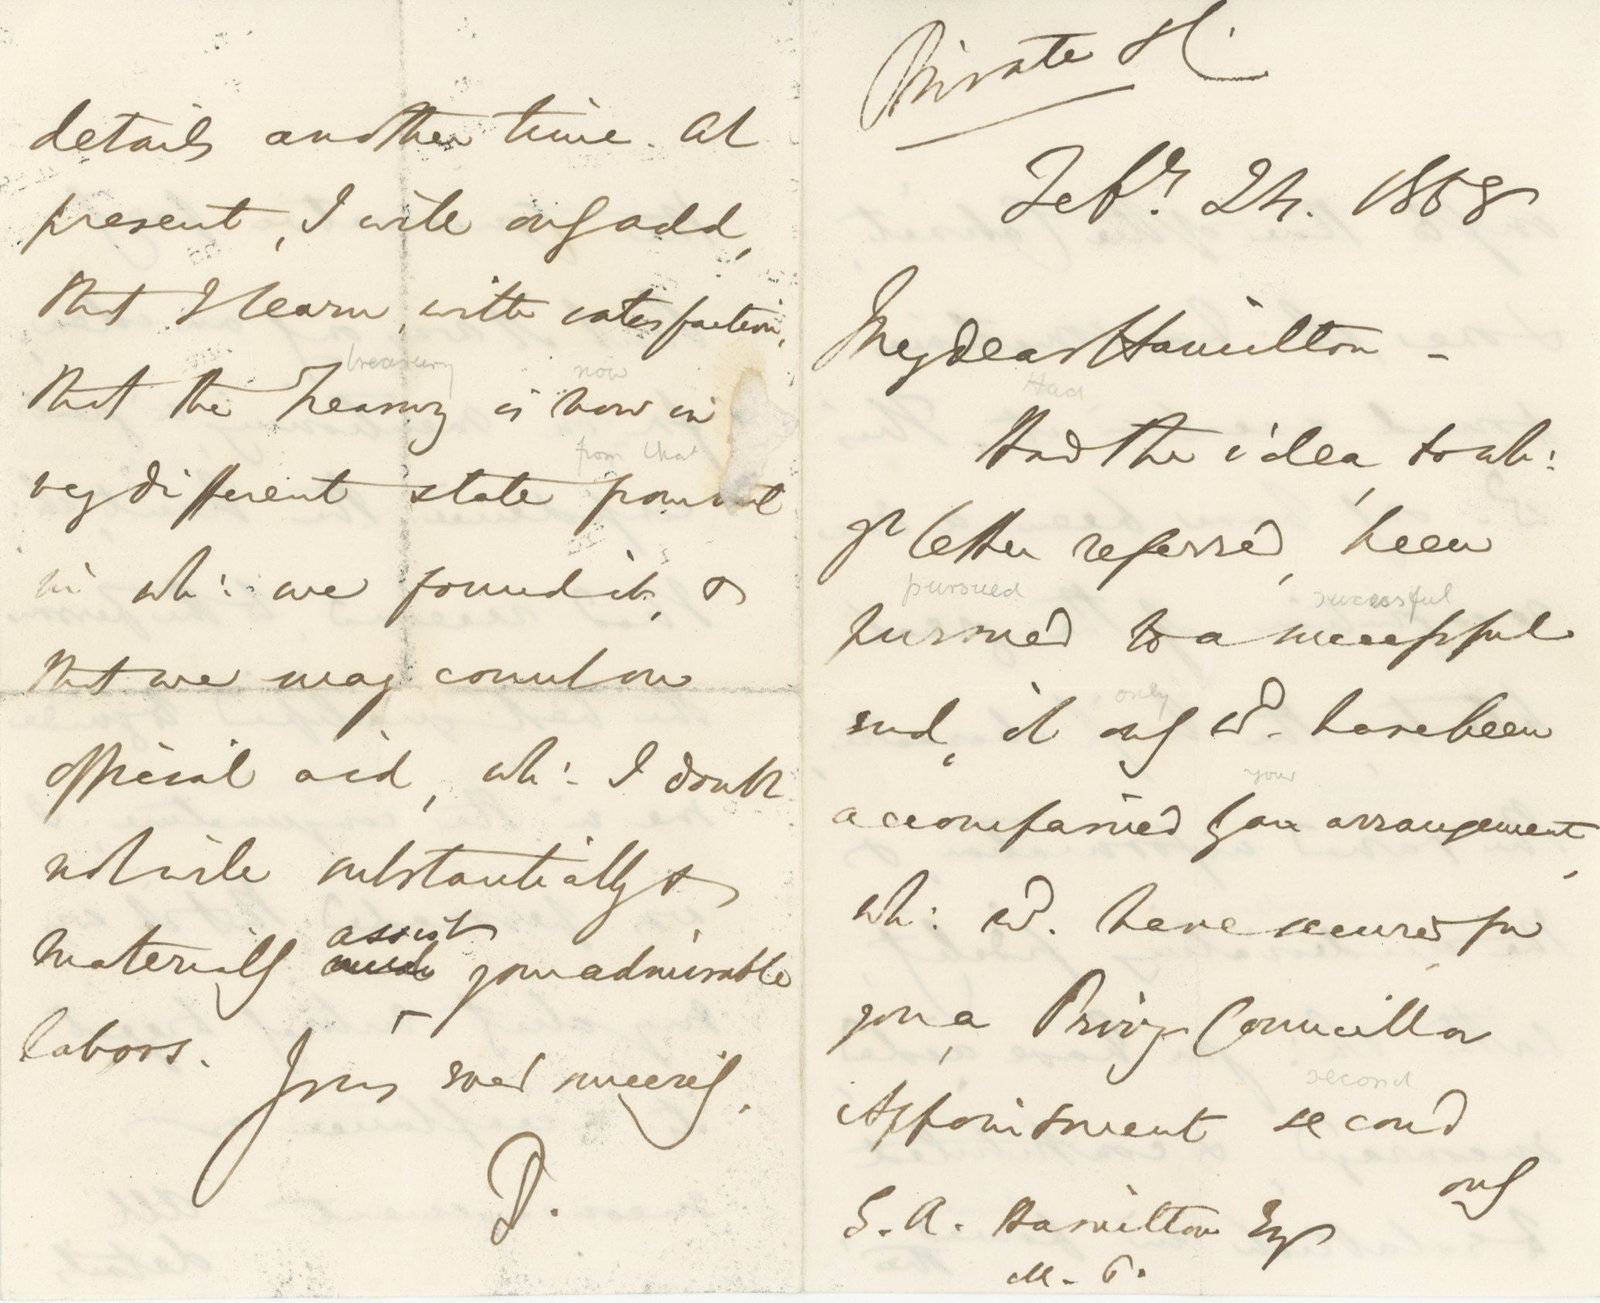 Private H.
Feby. 24. 1868
My dear Hamilton -
Had
Had the idea, to wh:
yr letter referred, been
pursued successful
pursued to a successful
end, it only wd. have been
only
your
accompanied by an arrangement,
wh: wd. have secured for
you, a Privy Councillor
second
Appointment second
only
G. A. Hamilton Esqr
M. P.
details another time. At
present, I will only add,
that I learn, with satisfaction,
treasury now
that the Treasury is now in
from that
very different state from that
in wh: we found it, &
that we may count on
official aid, wh: I doubt
not will substantially &
assist
materially your admirable
labors.
Yours ever sincerely,
D.